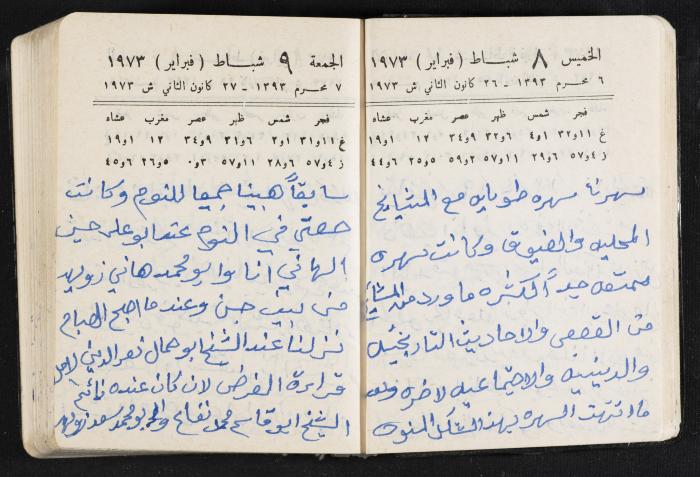 الخميس ٨ شباط ( فبراير ) ١٩٧٣
٦ محرم ١٣٩٣ - ٢٦ كانون الثاني ش ١٩٧٣
فجر شمس ظهر عصر مغرب عشاء
غ ١١و٣٢ ١و٤ ٦و٣٢ ٩و٣٤ ١٢ ١و١٩
ز ٤و٥٧ ٦و٢٩ ١١و٥٧ ٢و٥٩ ٥و٢٥ ٦و٤٤
سهرنا سهره طويله مع المشايخ
المحليه والضيوف وكانت سهره
ممتعه جداً لكثره ما ورد من المشايخ
من القصص والاحاديث التاريخيه
والدينيه والاجتماعيه لاخره
ما انتهت السهره بهذا الشكل المنوه
الجمعة ٩ شباط ( فبراير ) ١٩٧٣
٧ محرم ١٣٩٣ - ٢٧ كانون الثاني ش ١٩٧٣
فجر شمس ظهر عصر مغرب عشاء
غ ١١و٣١ ١و٢ ٦و٣١ ٩و٣٤ ١٢ ١و١٩
ز ٤و٥٧ ٦و٢٨ ١١و٥٧ ٣و٠ ٥و٢٦ ٦و٤٥
سابقاً هبينا جميعا للنوم وكانت
حصتي في النوم عند ابو علي حسين
الهاني انا وابو محمد هاني زويهد
من بيت جن وعندما اصبح الصباح
نزلنا عند الشيخ ابو جمال نصر الديني لاجل
قراءة الفرض لان كان عنده نائم
الشيخ ابو قاسم محمد نفاع وابو محمد سعد زويهد